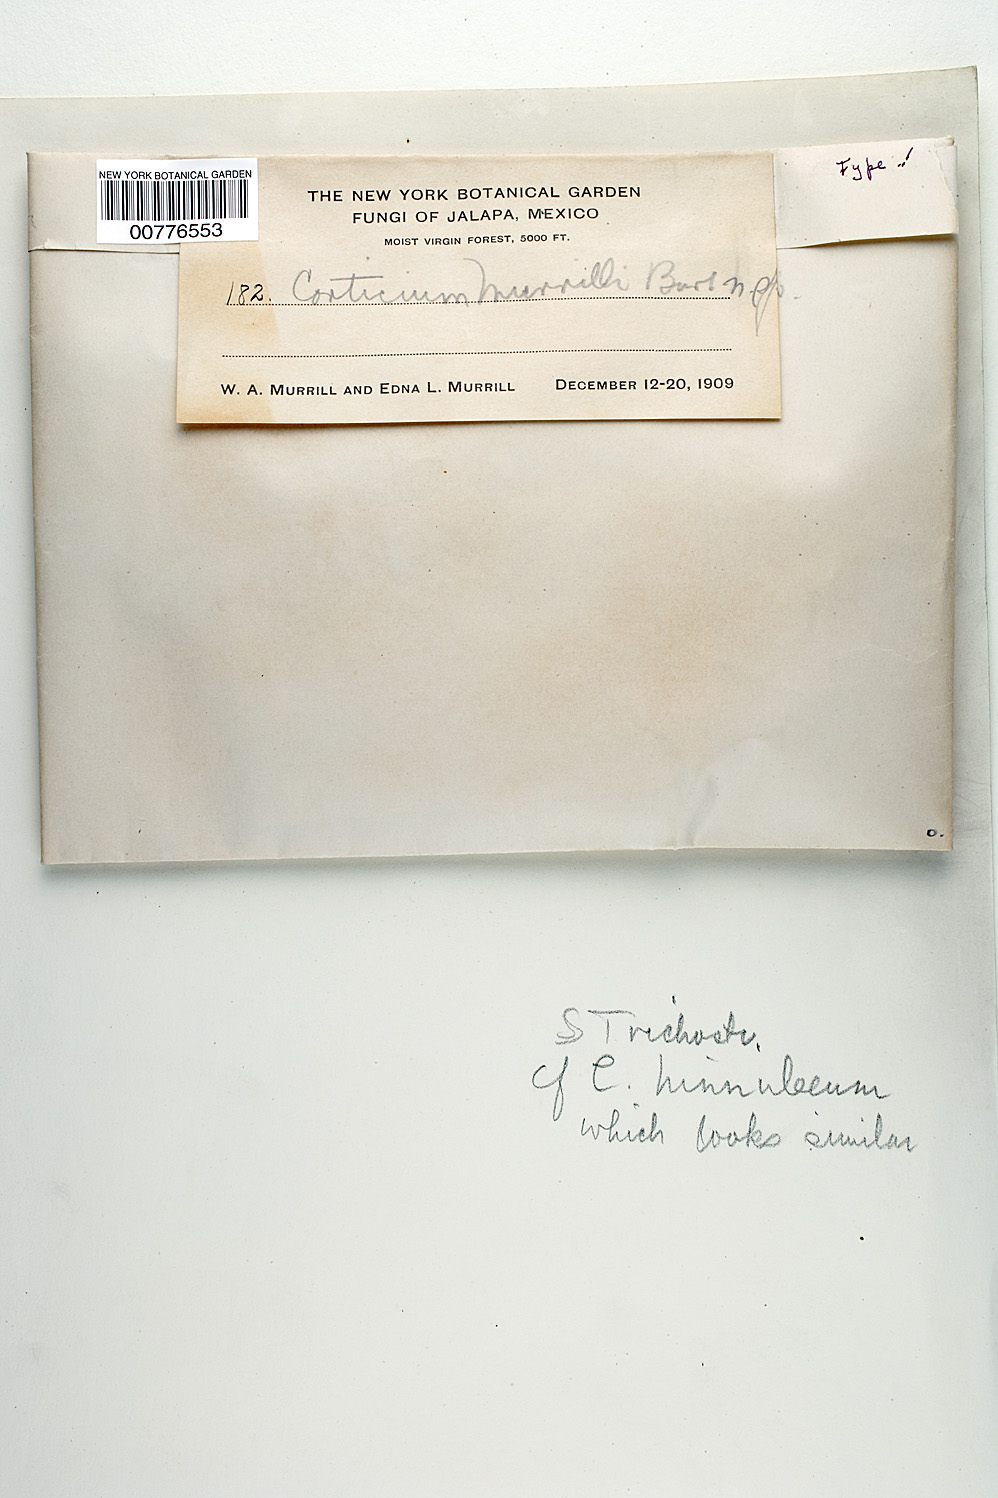 Type !
NEW YORK BOTANICAL GARDEN
00776553
THE NEW YORK BOTANICAL GARDEN
FUNGI OF JALAPA, MEXICO
MOIST VIRGIN FOREST, 5000 FT.
182. Corticium Murrilli Burt n. sp.
W. A. MURRILL AND EDNA L. MURRILL DECEMBER 12-20, 1909
o.
S Trichosta.
cf C. hinnuleum
which looks similar